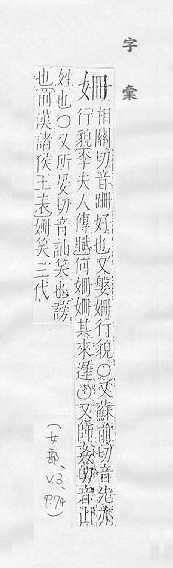 字彙
姍 相關切音跚好也又槃姍行貌〇又蘇前切音先亦
行貌李夫人傳賦何姍姍其來遲〇又師姦切音山
姓也〇又所晏切音訕笑也謗
也前漢諸侯王表姍笑三代
(女部、V.3、P.74)